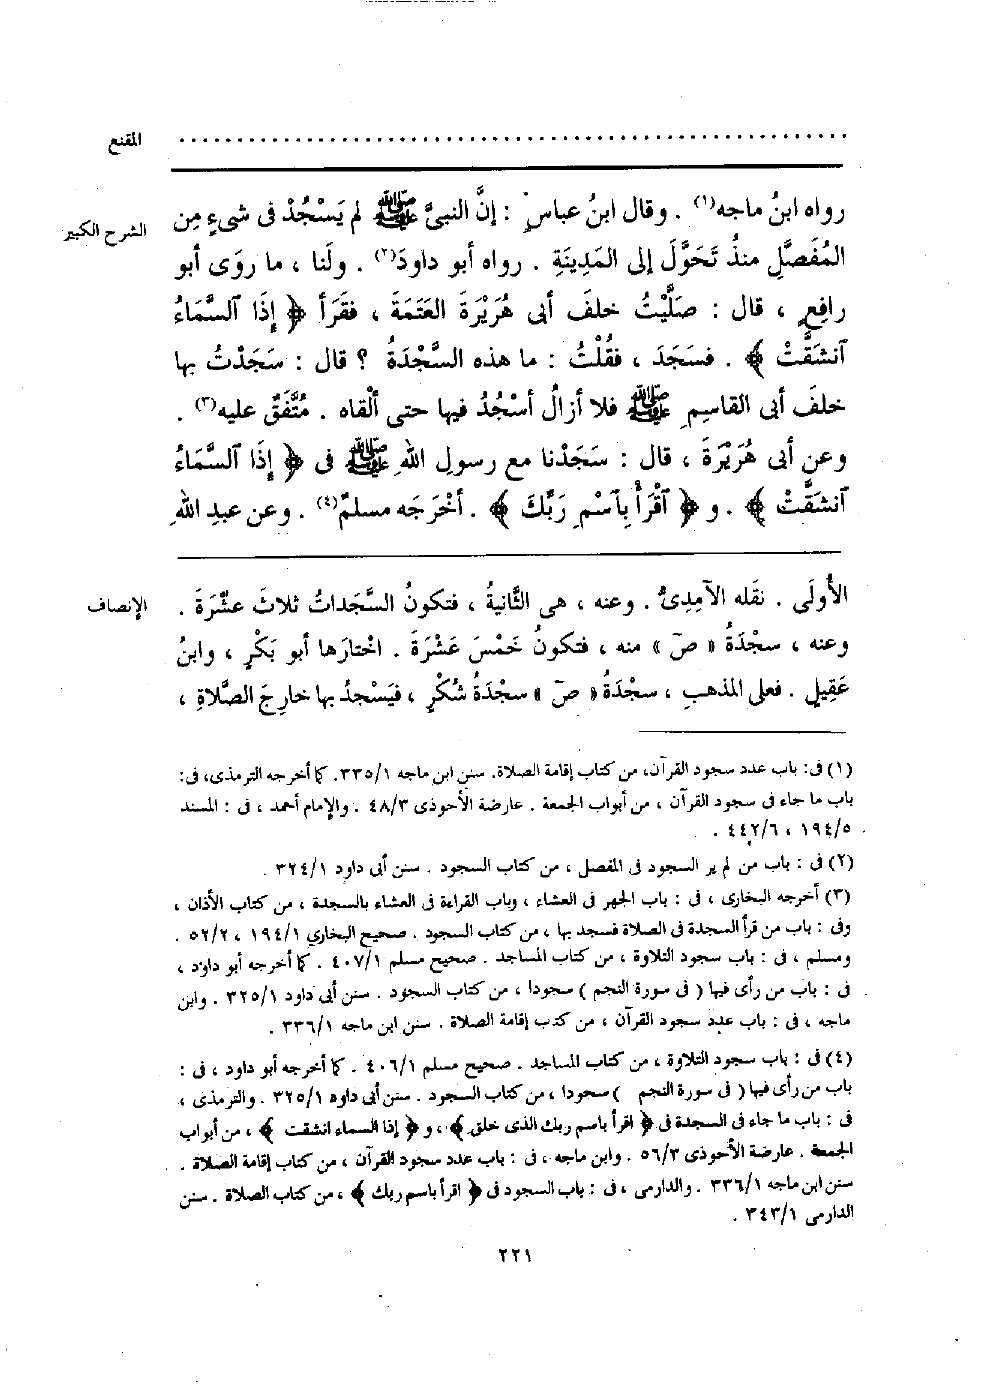 المقنع ................................................
الشرح الكبير
رواه ابنُ ماجه(١) . وقال ابنُ عباسٍ : إنَّ النبىَّ ﷺ لم يَسْجُدْ فى شىءٍ مِن
المُفَصَّلِ منذُ تَحَوَّلَ إلى المَدِينَةِ . رواه أبو داودَ(٢) . ولَنا ، ما روَى أبو
رافِعٍ ، قال : صَلَّيْتُ خلفَ أبى هُرَيْرَةَ العَتَمَةَ ، فقَرَأ ﴿ إِذَا ٱلسَّمَاءُ
ٱنشَقَّتْ ﴾ . فسَجَدَ ، فقُلْتُ : ما هذه السَّجْدَةُ ؟ قال : سَجَدْتُ بها
خلفَ أبى القاسِمِ ﷺ فلا أزالُ أسْجُدُ فيها حتى ألْقاه . مُتَّفَقٌ عليه(٣) .
وعن أبى هُرَيْرَةَ ، قال : سَجَدْنا مع رسولِ اللهِ ﷺ فى ﴿ إِذَا ٱلسَّمَاءُ
ٱنشَقَّتْ ﴾ . و ﴿ ٱقْرَأْ بِٱسْمِ رَبِّكَ ﴾ . أخْرَجَه مسلمٌ(٤) . وعن عبدِ اللهِ
الإنصاف
الأُولَى . نقَله الآمِدِىُّ . وعنه ، هى الثَّانيةُ ، فتكونُ السَّجَداتُ ثلاثَ عشْرَةَ .
وعنه ، سجْدَةُ « صٓ » منه ، فتكونُ خَمْسَ عَشْرَةَ . اخْتارَها أبو بَكْرٍ ، وابنُ
عَقِيلٍ . فعلى المذهبِ ، سجْدَةُ « صٓ » سجْدَةُ شُكْرٍ ، فيَسْجدُ بها خارِجَ الصَّلاةِ ،
(١) فى: باب عدد سجود القرآن، من كتاب إقامة الصلاة. سنن ابن ماجه ٣٣٥/١. كما أخرجه الترمذى، فى:
باب ما جاء فى سجود القرآن ، من أبواب الجمعة . عارضة الأحوذى ٤٨/٣ . والإمام أحمد ، فى : المسند
١٩٤/٥ ، ٤٤٢/٦ .
(٢) فى : باب من لم ير السجود فى المفصل ، من كتاب السجود . سنن أبى داود ٣٢٤/١ .
(٣) أخرجه البخارى ، فى : باب الجهر فى العشاء ، وباب القراءة فى العشاء بالسجدة ، من كتاب الأذان ،
وفى : باب من قرأ السجدة فى الصلاة فسجد بها ، من كتاب السجود . صحيح البخاري ١٩٤/١ ، ٥٢/٢ .
ومسلم ، فى : باب سجود التلاوة ، من كتاب المساجد . صحيح مسلم ٤٠٧/١ . كما أخرجه أبو داود ،
فى : باب من رأى فيها ( فى سورة النجم ) سجودا ، من كتاب السجود . سنن أبى داود ٣٢٥/١ . وابن
ماجه ، فى : باب عدد سجود القرآن ، من كتب إقامة الصلاة . سنن ابن ماجه ٣٣٦/١ .
(٤) فى : باب سجود التلاوة ، من كتاب المساجد . صحيح مسلم ٤٠٦/١ . كما أخرجه أبو داود ، فى :
باب من رأى فيها ( فى سورة النجم ) سجودا ، من كتاب السجود . سنن أبى داود ٣٢٥/١ . والترمذى ،
فى : باب ما جاء فى السجدة فى ﴿ اقرأ باسم ربك الذى خلق ﴾ ، و ﴿ إذا السماء انشقت ﴾ ، من أبواب
الجمعة . عارضة الأحوذى ٥٦/٣ . وابن ماجه ، فى : باب عدد سجود القرآن ، من كتاب إقامة الصلاة .
سنن ابن ماجه ٣٣٦/١ . والدارمى ، فى : باب السجود فى ﴿ اقرأ باسم ربك ﴾ ، من كتاب الصلاة . سنن
الدارمى ٣٤٣/١ .
٢٢١